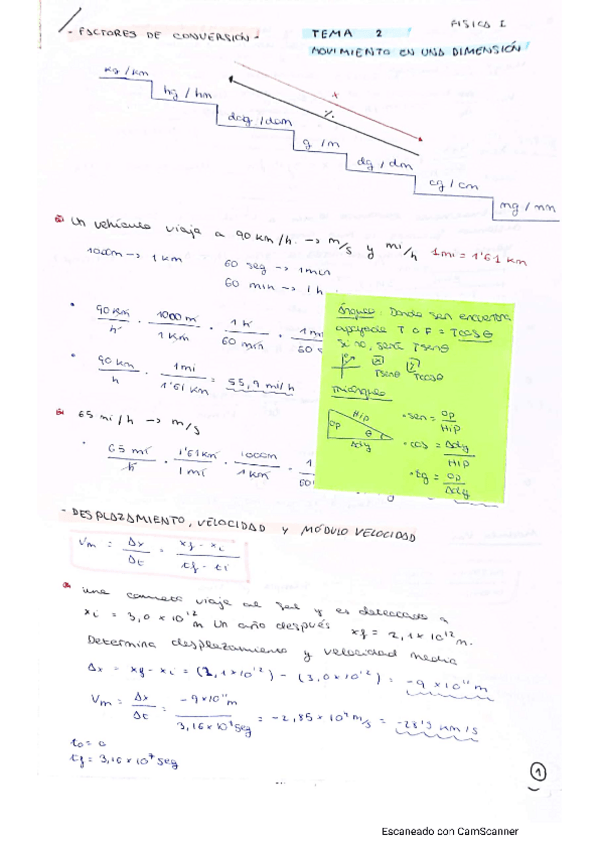 FISICA I
- FACTORES DE CONVERSIÓN -
TEMA 2
MOVIMIENTO EN UNA DIMENSIÓN
kg / km
hg / hm
dag / dam
g / m
dg / dm
cg / cm
mg / mm
x
%
Un vehículo viaja a 90 km/h. -> m/s y mi/h 1mi = 1'61 km
1000m -> 1 km
60 seg -> 1min
60 min -> 1h
90 km/h · 1000 m/1 km · 1 h/60 min · 1 min/60
90 km/h · 1mi/1'61 km = 55,9 mi/h
65 mi/h -> m/s
65 mi/h · 1'61km/1mi · 1000m/1km · 1/60
Ángulo: Donde
T o F = Tcosθ
si no, será Tsenθ
Tsenθ Tcosθ
Triángulo
Hip
Op
θ
Ady
· sen = Op/Hip
· cos = Ady/Hip
· tg = Op/Ady
- DESPLAZAMIENTO, VELOCIDAD Y MÓDULO VELOCIDAD
Vm = Δx/Δt = xf - xi/tf - ti
una cometa viaja al sol y es detectado a
xi = 3,0 x 10¹² m un año después xf = 2,1 x 10¹² m.
Determina desplazamiento y velocidad media
Δx = xf - xi = (2,1x10¹²) - (3,0x10¹²) = -9 x 10¹¹ m
Vm = Δx/Δt = -9x10¹¹ m/3,16 x 10⁷ seg = -2,85 x 10⁴ m/s = -28'5 km/s
t0 = 0
tf = 3,16 x 10⁷ seg
1
Escaneado con CamScanner